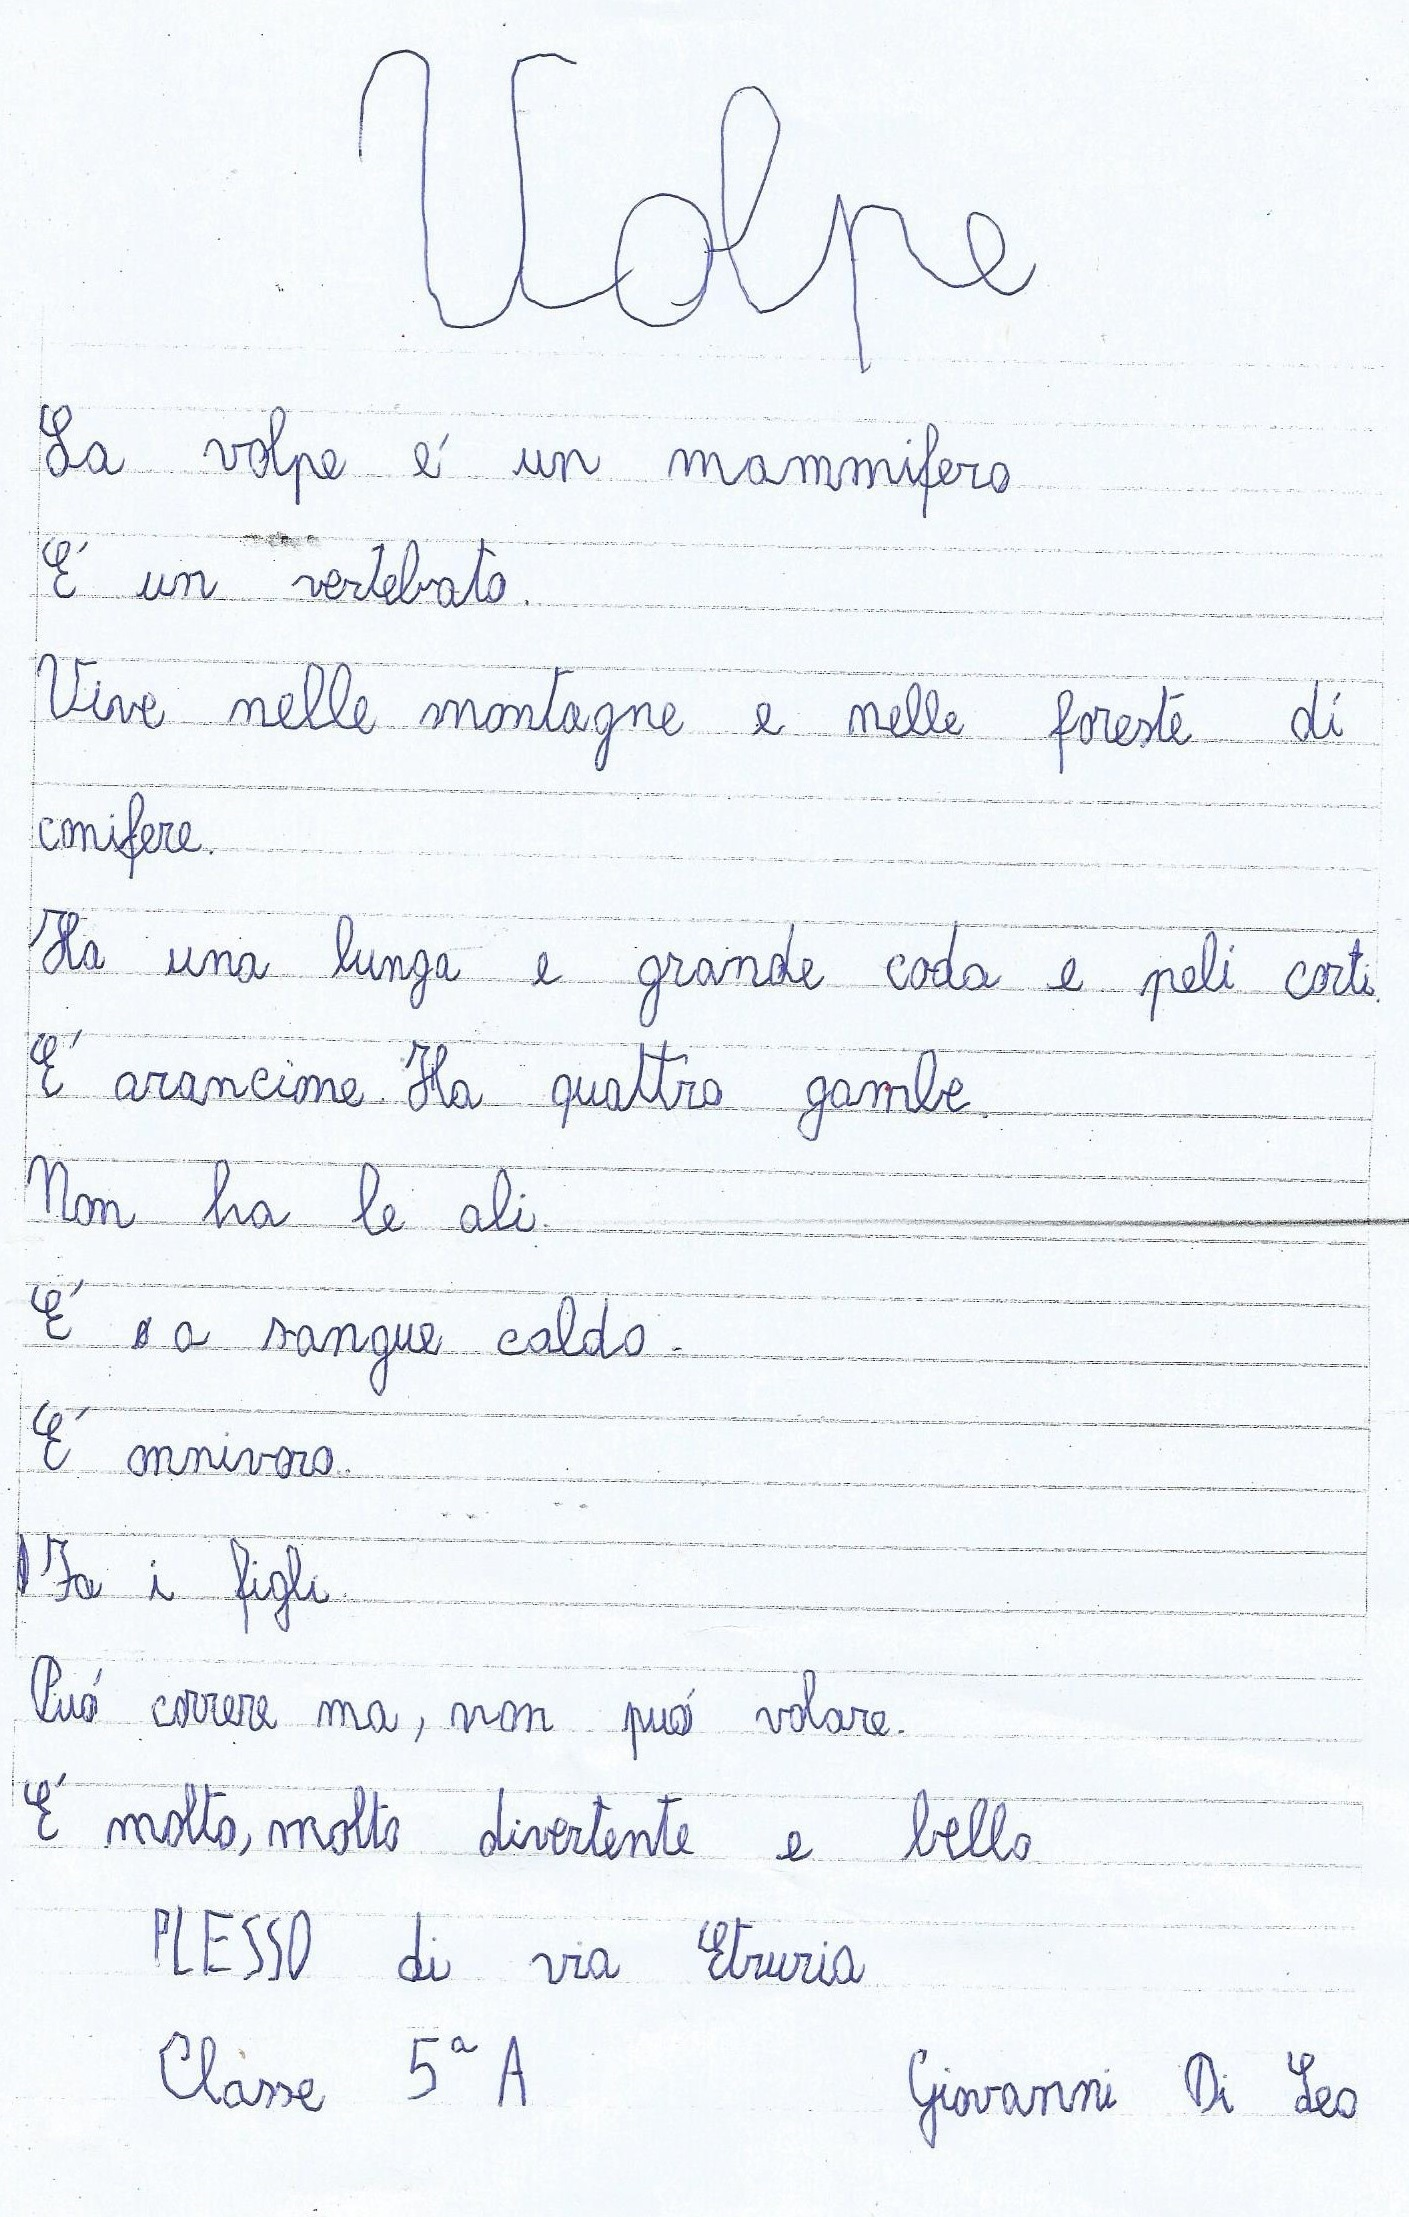 Volpe
La volpe é un mammifero
É un vertebrato.
Vive nelle montagne e nelle foreste di
conifere.
Ha una lunga e grande coda e peli corti.
É arancione. Ha quattro gambe.
Non ha le ali.
É a sangue caldo.
É onnivoro.
Fa i figli.
Puó correre ma, non puó volare.
É molto, molto divertente e bello
PLESSO di via Etruria
Classe 5ª A Giovanni Di Leo